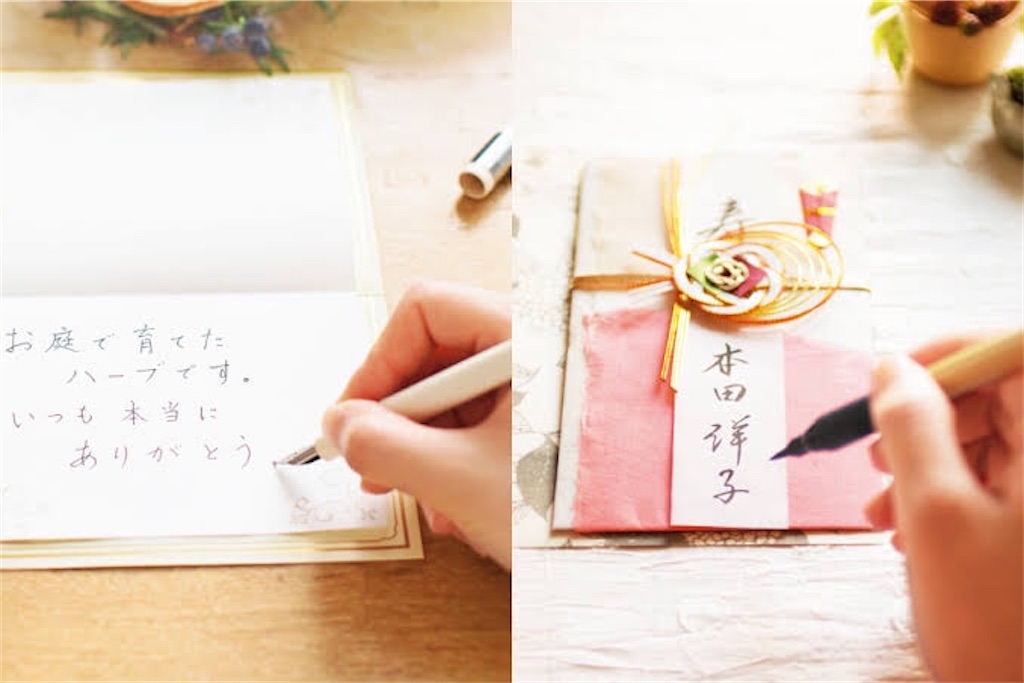 お庭で育てた
ハーブです。
いつも本当に
ありがとう
寿
本田洋子